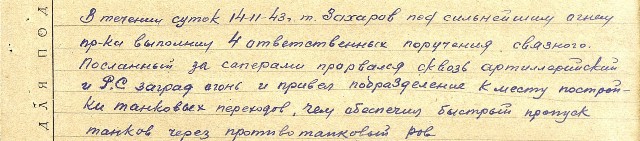 В течении суток 14-11-43 г. т. Захаров под сильнейшим огнем
пр-ка выполнил 4 ответственных поручения связного.
Посланный за саперами прорвался сквозь артиллерийский
и Р.С заград огонь и привел подразделение к месту построй-
ки танковых переходов, чем обеспечил быстрый пропуск
танков через противотанковый ров
ДЛЯ ПОД